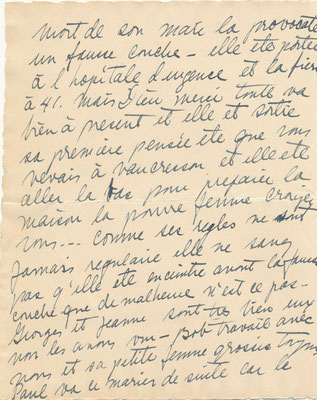 mort de son mari la provocate
un fausse couche - elle ete portee
à l'hopitale d'urgence et la fievre
à 41. mais Dieu merci toute va
bien à present et elle et sortie
sa première pensée ete que vous
venais à Vaucresson et elle ete
aller la bas pour prepaire la
maison la pauvre femme croyez
vous... comme ses regles ne sont
jamais regulaire elle ne savez
pas qu'elle ete enceintre avant la fausse
couche que de malheure n'est ce pas -
Georges et Jeanne sont tres bien eux
nous les avons vu - Bob travail avec
nous et sa petite femme grossis
Paul va ce marier de suite car le